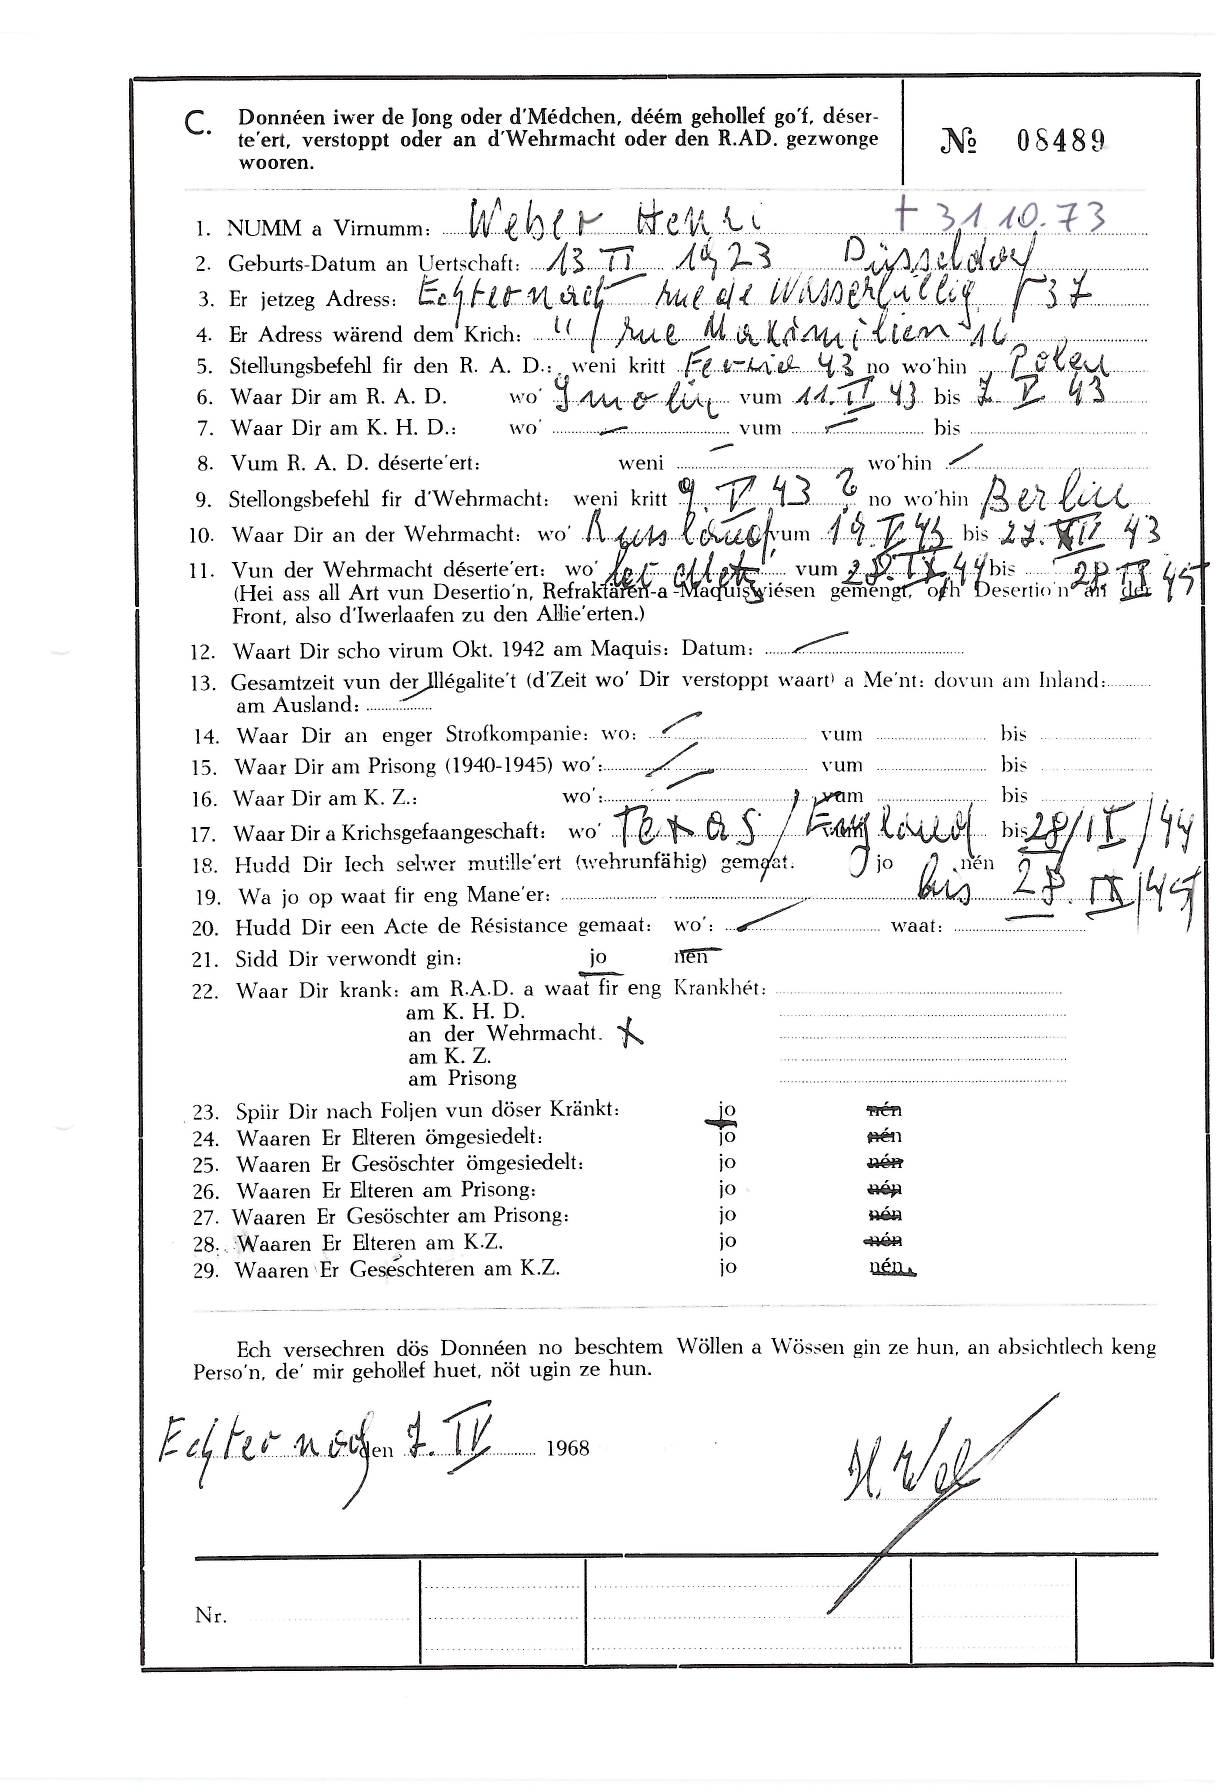 C. Donnéen iwer de Jong oder d'Médchen, déém gehollef go'f, déser-
te'ert, verstoppt oder an d'Wehrmacht oder den R.AD. gezwonge
wooren.
№ 08489
1. NUMM a Virnumm: Weber Henri † 31.10.73
2. Geburts-Datum an Uertschaft: 13 II 1923 Düsseldorf
3. Er jetzeg Adress: Echternach rue de Wasserbillig 37
4. Er Adress wärend dem Krich: " / rue Maximilien 16
5. Stellungsbefehl fir den R. A. D.: weni kritt 43 no wo'hin Polen
6. Waar Dir am R. A. D. wo' vum 11. II 43 bis 7. V 43
7. Waar Dir am K. H. D.: wo' — vum — bis
8. Vum R. A. D. déserte'ert: weni — wo'hin —
9. Stellongsbefehl fir d'Wehrmacht: weni kritt 9. V 43 ? no wo'hin Berlin
10. Waar Dir an der Wehrmacht: wo' Russland vum 19. V 43 bis 27. XII 43
11. Vun der Wehrmacht déserte'ert: wo' bei Metz vum 28. IX 44 bis 28 IX 45
(Hei ass all Art vun Desertio'n, Refraktären-a -Maquiswiésen gemengt, och Desertio'n an der
Front, also d'Iwerlaafen zu den Allie'erten.)
12. Waart Dir scho virum Okt. 1942 am Maquis: Datum: —
13. Gesamtzeit vun der Illégalite't (d'Zeit wo' Dir verstoppt waart) a Me'nt: dovun am Inland:
am Ausland: —
14. Waar Dir an enger Strofkompanie: wo: — vum bis
15. Waar Dir am Prisong (1940-1945) wo': — vum bis
16. Waar Dir am K. Z.: wo': — vum bis
17. Waar Dir a Krichsgefaangeschaft: wo' Texas / England vum bis 28/IX/44
18. Hudd Dir Iech selwer mutille'ert (wehrunfähig) gemaat. jo nén
bis 28. IX/45
19. Wa jo op waat fir eng Mane'er:
20. Hudd Dir een Acte de Résistance gemaat: wo': — waat:
21. Sidd Dir verwondt gin: jo nén
22. Waar Dir krank: am R.A.D. a waat fir eng Krankhét:
am K. H. D.
an der Wehrmacht. X
am K. Z.
am Prisong
23. Spiir Dir nach Foljen vun döser Kränkt: jo nén
24. Waaren Er Elteren ömgesiedelt: jo nén
25. Waaren Er Gesöschter ömgesiedelt: jo nén
26. Waaren Er Elteren am Prisong: jo nén
27. Waaren Er Gesöschter am Prisong: jo nén
28. Waaren Er Elteren am K.Z. jo nén
29. Waaren Er Geseschteren am K.Z. jo nén
Ech versechren dös Donnéen no beschtem Wöllen a Wössen gin ze hun, an absichtlech keng
Perso'n, de' mir gehollef huet, nöt ugin ze hun.
Echternach den 7. IV 1968
H. Web
Nr.